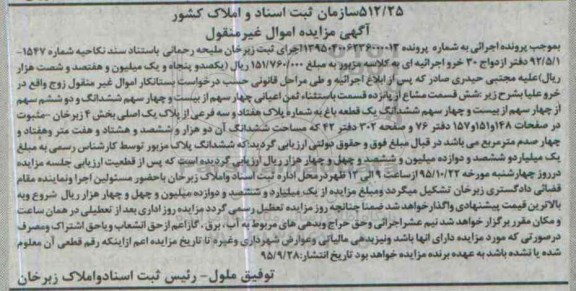 ۵۱۲/۲۵سازمان ثبت اسناد و املاک کشور
آگهی مزایده اموال غیرمنقول
بموجب پرونده اجرائی به شماره پرونده ۱۳۹۵۰۴۰۰۶۲۳۶۰۰۰۰۱۳اجرای ثبت زبرخان ملیحه رحمانی باستناد سند نکاحیه شماره ۱۵۴۷-
۹۲/۵/۱ دفتر ازدواج ۳۰ خرو اجرائیه ای به کلاسه مزبور به مبلغ ۱۵۱/۷۶۰/۰۰۰ ریال (یکصدو پنجاه و یک میلیون و هفتصد و شصت هزار
ریال)علیه مجتبی حیدری صادر که پس از ابلاغ اجرائیه و طی مراحل قانونی حسب درخواست بستانکار اموال غیر منقول زوج واقع در
خرو علیا بشرح زیر :شش قسمت مشاع از پانزده قسمت باستثناء ثمن اعیانی چهار سهم از بیست و چهار سهم ششدانگ و دو ششم سهم
از چهار سهم از بیست و چهار سهم ششدانگ یک قطعه باغ به شماره پلاک هفتاد و سه فرعی از پلاک یک اصلی بخش ۴ زبرخان -مثبوت
در صفحات ۱۴۸و۱۵۱و۱۵۷ دفتر ۷۶ و صفحه ۳۰۲ دفتر ۴۲ که مساحت ششدانگ آن دو هزار و ششصد و هشتاد و هفت متر وهفتاد و
چهار صدم مترمربع می باشد در قبال مبلغ فوق و حقوق دولتی ارزیابی گردید:که ششدانگ پلاک مزبور توسط کارشناس رسمی به مبلغ
یک میلیارد و ششصد و دوازده میلیون و ششصد و چهل و چهار هزار ریال ارزیابی گردیده است که پس از قطعیت ارزیابی جلسه مزایده
درروز چهارشنبه مورخه ۹۵/۱۰/۲۲ از ساعت ۹ الی ۱۲ ظهردرمحل اداره ثبت اسناد واملاک زبرخان باحضور مسئولین اجرا ونماینده مقام
قضائی دادگستری زبرخان تشکیل میگردد ومبلغ مزایده از یک میلیارد و ششصد و دوازده میلیون و چهل و چهار هزار ریال شروع وبه
بالاترین قیمت پیشنهادی واگذارخواهد شد ضمنا چنانچه روز مزایده تعطیل رسمی گردد مزایده روز اداری بعد از تعطیلی در همان ساعت
و مکان مقرر برگزار خواهد شد نیم عشراجرائی وحق حراج وبدهی های مربوط به آب، برق، گازاعم از حق انشعاب ویاحق اشتراک ومصرف
درصورتی که مورد مزایده دارای انها باشد ونیزبدهی مالیاتی وعوارض شهرداری وغیره تا تاریخ مزایده اعم ازاینکه رقم قطعی آن معلوم
شده یا نشده باشد به عهده برنده مزایده خواهد بود تاریخ انتشار:۹۵/۹/۲۸
توفیق ملول- رئیس ثبت اسنادواملاک زبرخان